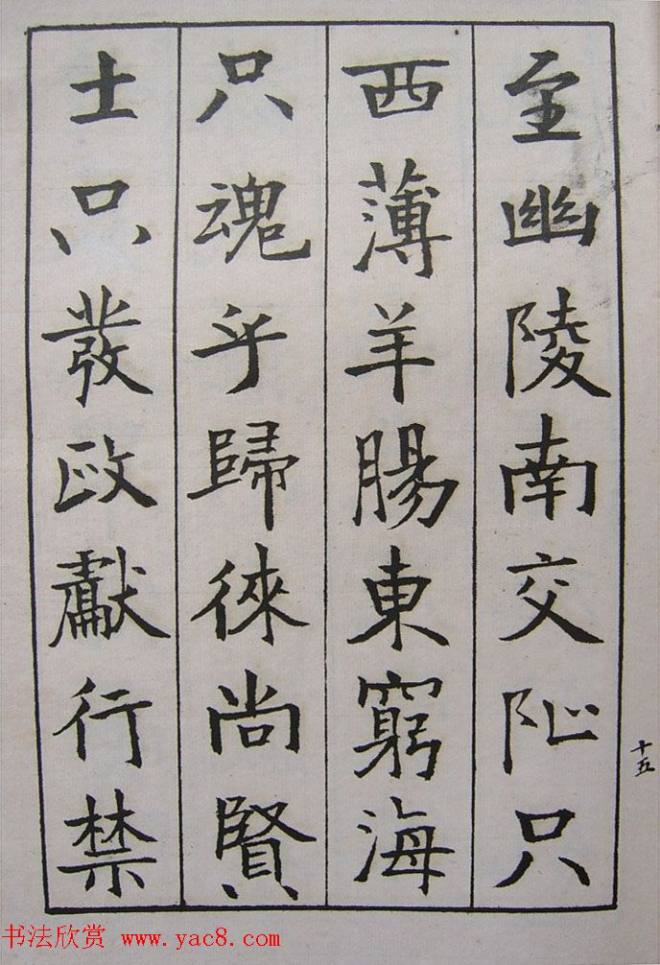 至幽陵南交阯只
西薄羊腸東窮海
只魂乎歸徠尚賢
士只發政獻行禁
十五
书法欣赏 www.yac8.com